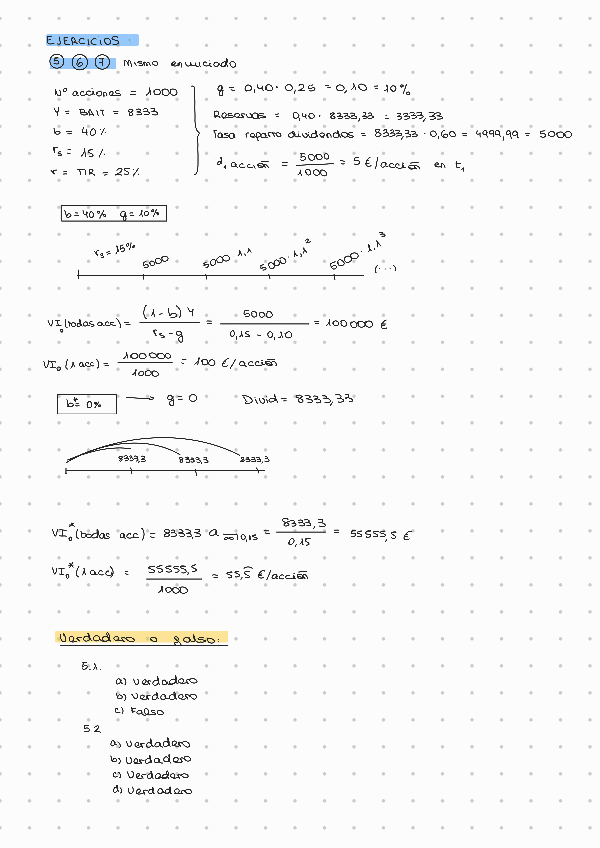 EJERCICIOS
5 6 7 Mismo enunciado
Nº acciones = 1000
Y = BAIT = 8333
b = 40%
rs = 15%
r = TIR = 25%
g = 0,40 · 0,25 = 0,10 = 10%
Reservas = 0,40 · 8333,33 = 3333,33
Tasa reparto dividendos = 8333,33 · 0,60 = 4999,99 = 5000
d₁ acción = 5000/1000 = 5 €/acción en t₁
b=40% g=10%
rs = 15% 5000 5000 · 1,1 5000 · 1,1² 5000 · 1,1³ (...)
VI₀ (todas acc) = (1-b) Y / rs - g = 5000 / 0,15 - 0,10 = 100000 €
VI₀ (1 acc) = 100000/1000 = 100 €/acción
b*= 0% → g = 0 Divid = 8333,33
8333,3 8333,3 8333,3
VI₀* (todas acc) = 8333,3 a ∞ 0,15 = 8333,3/0,15 = 55555,5 €
VI₀* (1 acc) = 55555,5/1000 = 55,5 €/acción
Verdadero o falso:
5.1.
a) Verdadero
b) Verdadero
c) Falso
5.2
a) Verdadero
b) Verdadero
c) Verdadero
d) Verdadero